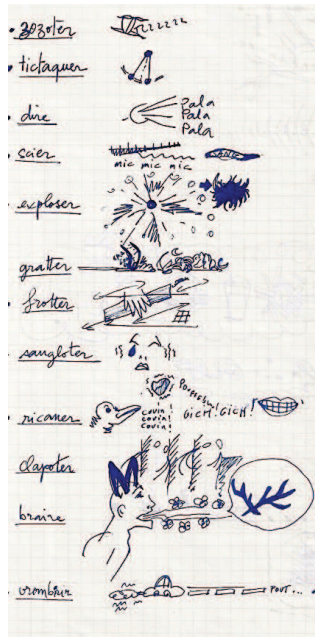 zozoter zzzzzz
tictaquer
dire pala
pala
pala
scier
mic mic mic
exploser
gratter
frotter
sangloter
ricaner couin
couin!
couin!
GICH! GICH!
clapoter
braire
vrombir POUT...